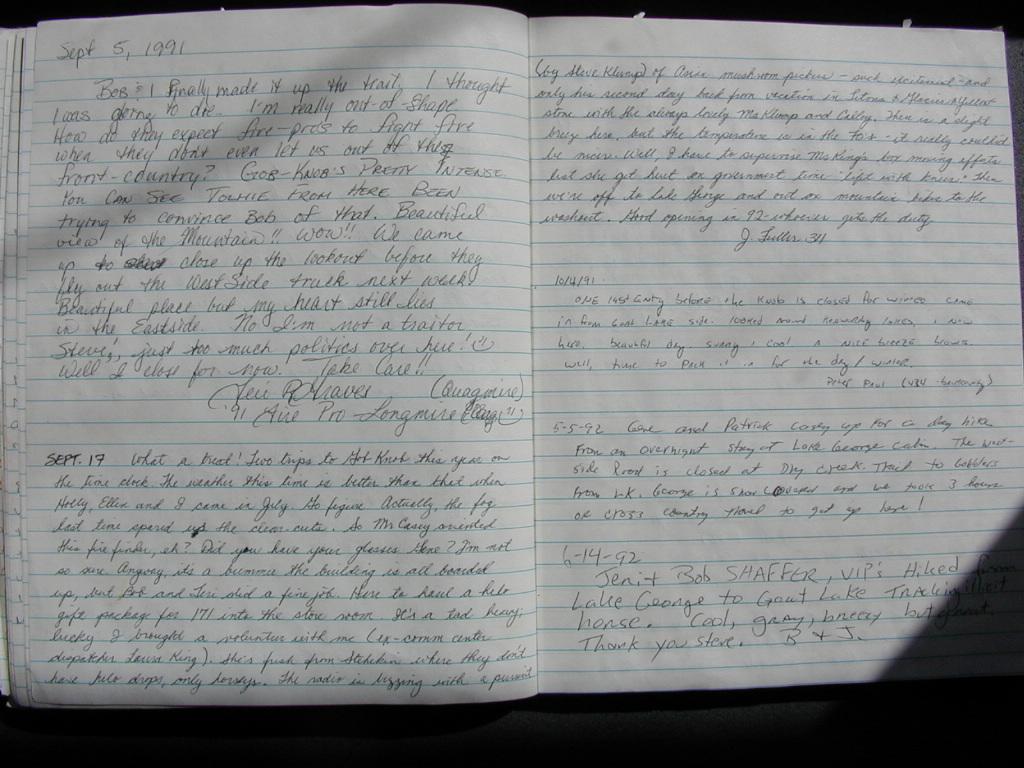 Sept 5, 1991
Bob & I finally made it up the trail, I thought
I was going to die. I'm really out-of-shape
How do they expect fire-pro's to fight fire
when they don't even let us out of the
front-country? GOB-KNOB'S PRETTY INTENSE
YOU CAN SEE TOLMIE FROM HERE BEEN
trying to convince Bob of that. Beautiful
view of the Mountain!! WOW!! We came
up to close up the lookout before they
fly out the West Side truck next week
Beautiful place but my heart still lies
in the Eastside. No I'm not a traitor
Steve!, just too much politics over here!
Well I close for now. Take Care!!
(Quagmire)
'91 Fire Pro-Longmire
SEPT. 17 What a treat! Two trips to Gob Knob this year on
the time clock. The weather this time is better than that when
Holly, Ellen and I came in July. Go figure. Actually, the fog
last time spared us the clear-cuts. So Mr Casey oriented
this fire finder, eh? Did you have your glasses Gene? I'm not
so sure. Anyway, it's a bummer the building is all boarded
up, but Bob and Teri did a fine job. Here to haul a helo
gift package for 171 into the store room. It's a tad heavy,
lucky I brought a volunteer with me (ex-comm center
dispatcher Laura King). She's fresh from Stehekin where they don't
have helo drops, only horseys. The radio is buzzing with a pursuit
(by Steve Klump) of Asian mushroom pickers - such excitement - and
only his second day back from vacation in Tetons & Glacier
with the always lovely Ms Klump and Cailey. There is a slight
breeze here, but the temperature is in the 70's - it really couldn't
be nicer. Well, I have to supervise Ms King's box moving efforts
lest she get hurt on government time "lift with knees". Then
we're off to Lake George and out on mountain bikes to the
washout. Good opening in 92 - whoever gets the duty
J. Fuller 311
10/4/91
ONE last Entry before the Knob is closed for winter came
in from Goat Lake side. looked around lakes, & now
here. beautiful day. sunny & cool a nice breeze blowing.
well, time to pack it in for the day/winter.
Peter Paul (434
5-5-92 Gene and Patrick Casey up for a day hike
From an overnight stay at Lake George Cabin. The west-
side Road is closed at Dry creek. Trail to Gobblers
From Lk. George is snow covered and we took 3 hours
of cross country travel to get up here!
6-14-92
Jeni & Bob SHAFFER, VIP's Hiked from
Lake George to Goat Lake Tracking illicit
horse. Cool, gray, breezy but great.
Thank you Steve. B & J.